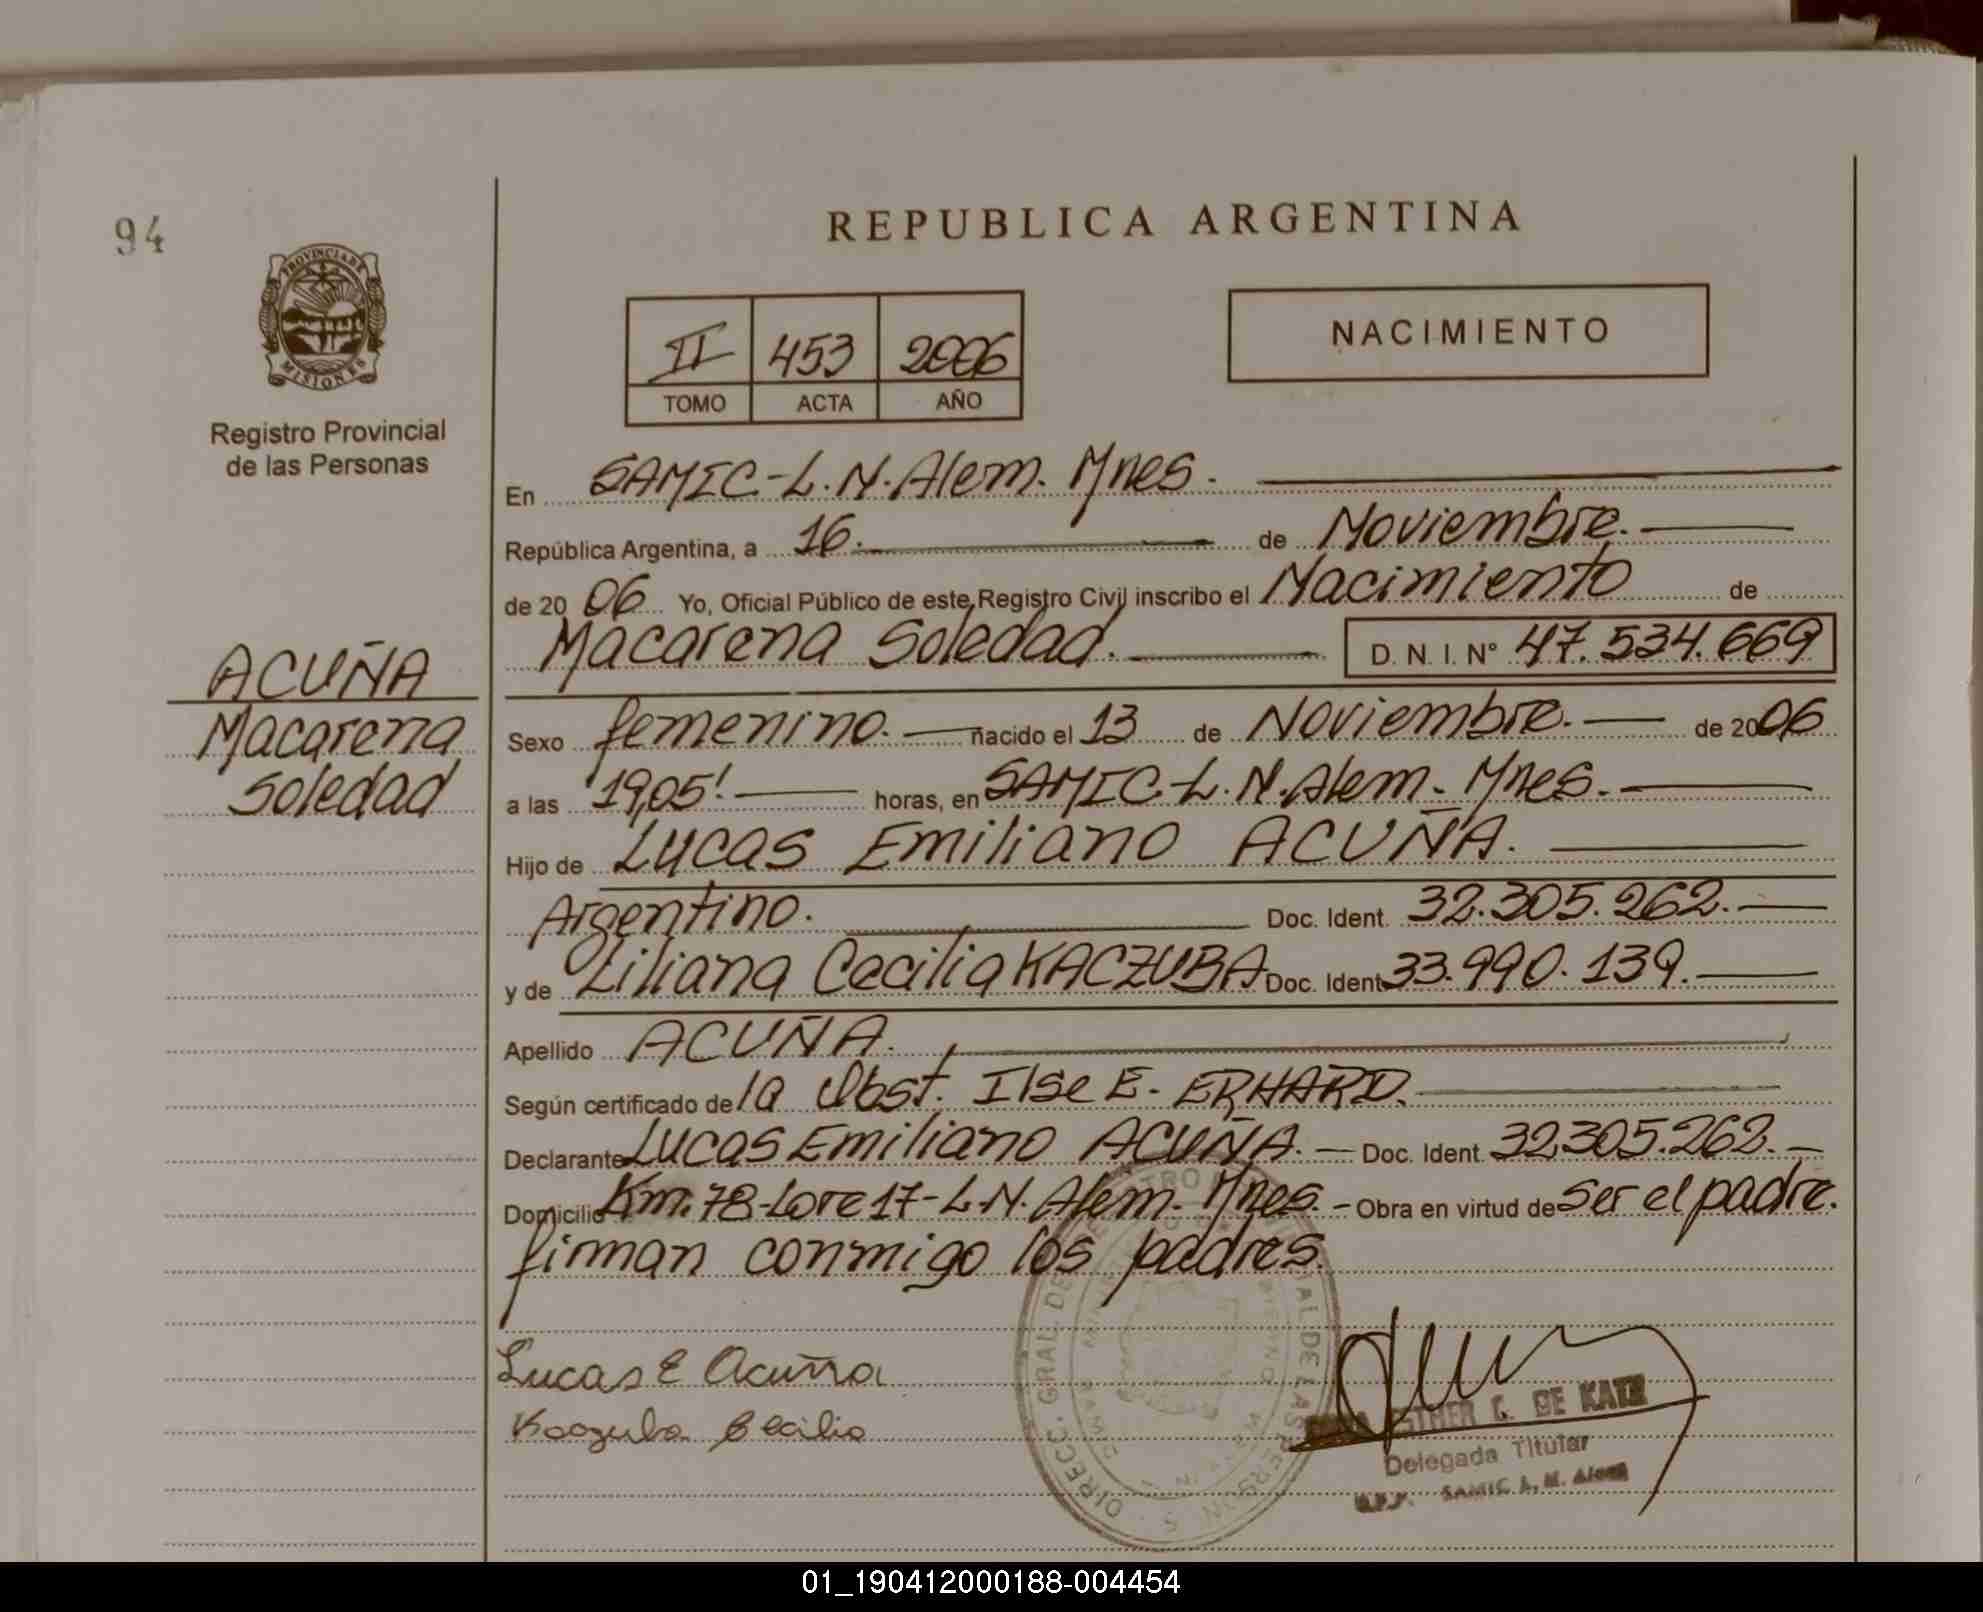 94
REPUBLICA ARGENTINA
PROVINCIA DE
MISIONES
Registro Provincial
de las Personas
II 453 2006
TOMO ACTA AÑO
NACIMIENTO
En SAMIC.-L.N.Alem. Mnes.
República Argentina, a 16. de Noviembre.
de 2006 Yo, Oficial Público de este Registro Civil inscribo el Nacimiento de
Macarena Soledad. D. N. I. N° 47.534.669
ACUÑA
Macarena
Soledad
Sexo femenino. nacido el 13 de Noviembre. de 2006
a las 19,05'. horas, en SAMIC.-L.N.Alem.-Mnes.
Hijo de Lucas Emiliano ACUÑA.
Argentino. Doc. Ident. 32.305.262.
y de Liliana Cecilia KACZUBA Doc. Ident. 33.990.139.
Apellido ACUÑA.
Según certificado de la Obst. Ilse E. ERHARD.
Declarante Lucas Emiliano ACUÑA. Doc. Ident. 32305.262.
Domicilio Km. 78-Lote 17-L.N. Alem.-Mnes. Obra en virtud de ser el padre.
firman conmigo los padres.
Lucas E Acuña
Kaczuba Cecilia
DIRECC. GRAL. DE
DE LAS PERS
ESTHER C. DE KATZ
Delegada Titular
SAMIC L. N. Alem
01_190412000188-004454